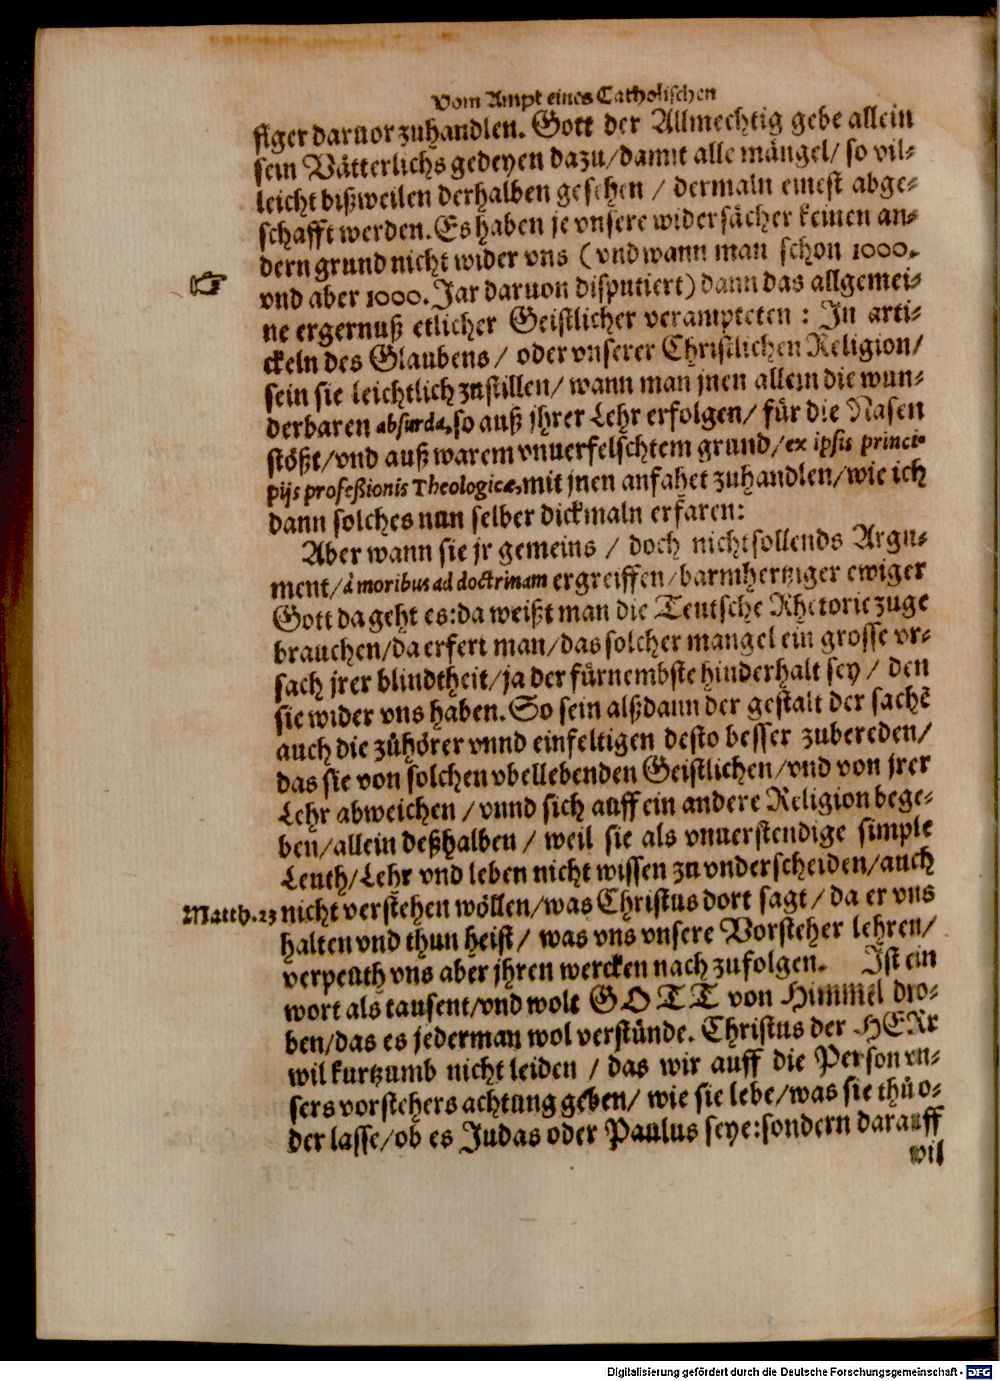 Vom Ampt eines Catholischen
figer daruor zuhandlen. Gott der Allmechtig gebe allein
sein Vätterlichs gedeyen dazu/damit alle mängel/ so vil⸗
leicht bißweilen derhalben gesehen / dermaln einest abge⸗
schafft werden. Es haben je vnsere widersächer keinen an⸗
dern grund nicht wider vns (vnd wann man schon 1000.
☞ vnd aber 1000. Jar daruon disputiert) dann das allgemei⸗
ne ergernuß etlicher Geistlicher verampteten : In arti⸗
ckeln des Glaubens / oder vnserer Christlichen Religion/
sein sie leichtlich zustillen/ wann man jnen allein die wun⸗
derbaren absurda, so auß jhrer Lehr erfolgen/ für die Nasen
stößt/vnd auß warem vnuerfelschtem grund/ex ipsis princi⸗
pijs profeßionis Theologicæ, mit jnen anfahet zuhandlen/wie ich
dann solches nun selber dickmaln erfaren:
Aber wann sie jr gemeins / doch nichtsollends Argu⸗
ment/à moribus ad doctrinam ergreiffen/barmhertziger ewiger
Gott da geht es:da weißt man die Teutsche Rhetoric zuge
brauchen/da erfert man/das solcher mangel ein grosse vr⸗
sach jrer blindtheit/ja der fürnembste hinderhalt sey / den
sie wider vns haben. So sein alßdann der gestalt der sachē
auch die zůhörer vnnd einfeltigen desto besser zubereden/
das sie von solchen vbellebenden Geistlichen/vnd von jrer
Lehr abweichen / vnnd sich auff ein andere Religion bege⸗
ben/allein deßhalben / weil sie als vnuerstendige simple
Leuth/Lehr vnd leben nicht wissen zu vnderscheiden/auch
Matth.23 nicht verstehen wöllen/was Christus dort sagt / da er vns
halten vnd thun heist / was vns vnsere Vorsteher lehren/
verpeuth vns aber jhren wercken nach zufolgen. Ist ein
wort als tausent/vnd wolt GOTT von Himmel dro⸗
ben/das es jederman wol verstünde. Christus der HERr
wil kurtzumb nicht leiden / das wir auff die Person vn⸗
sers vorstehers achtung geben/ wie sie lebe/was sie thů o⸗
der lasse/ob es Judas oder Paulus seye:sondern darauff
wil
Digitalisierung gefördert durch die Deutsche Forschungsgemeinschaft - DFG